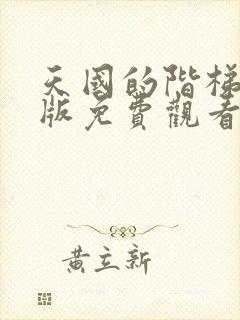 天國的階梯
版免費觀看
黃立新